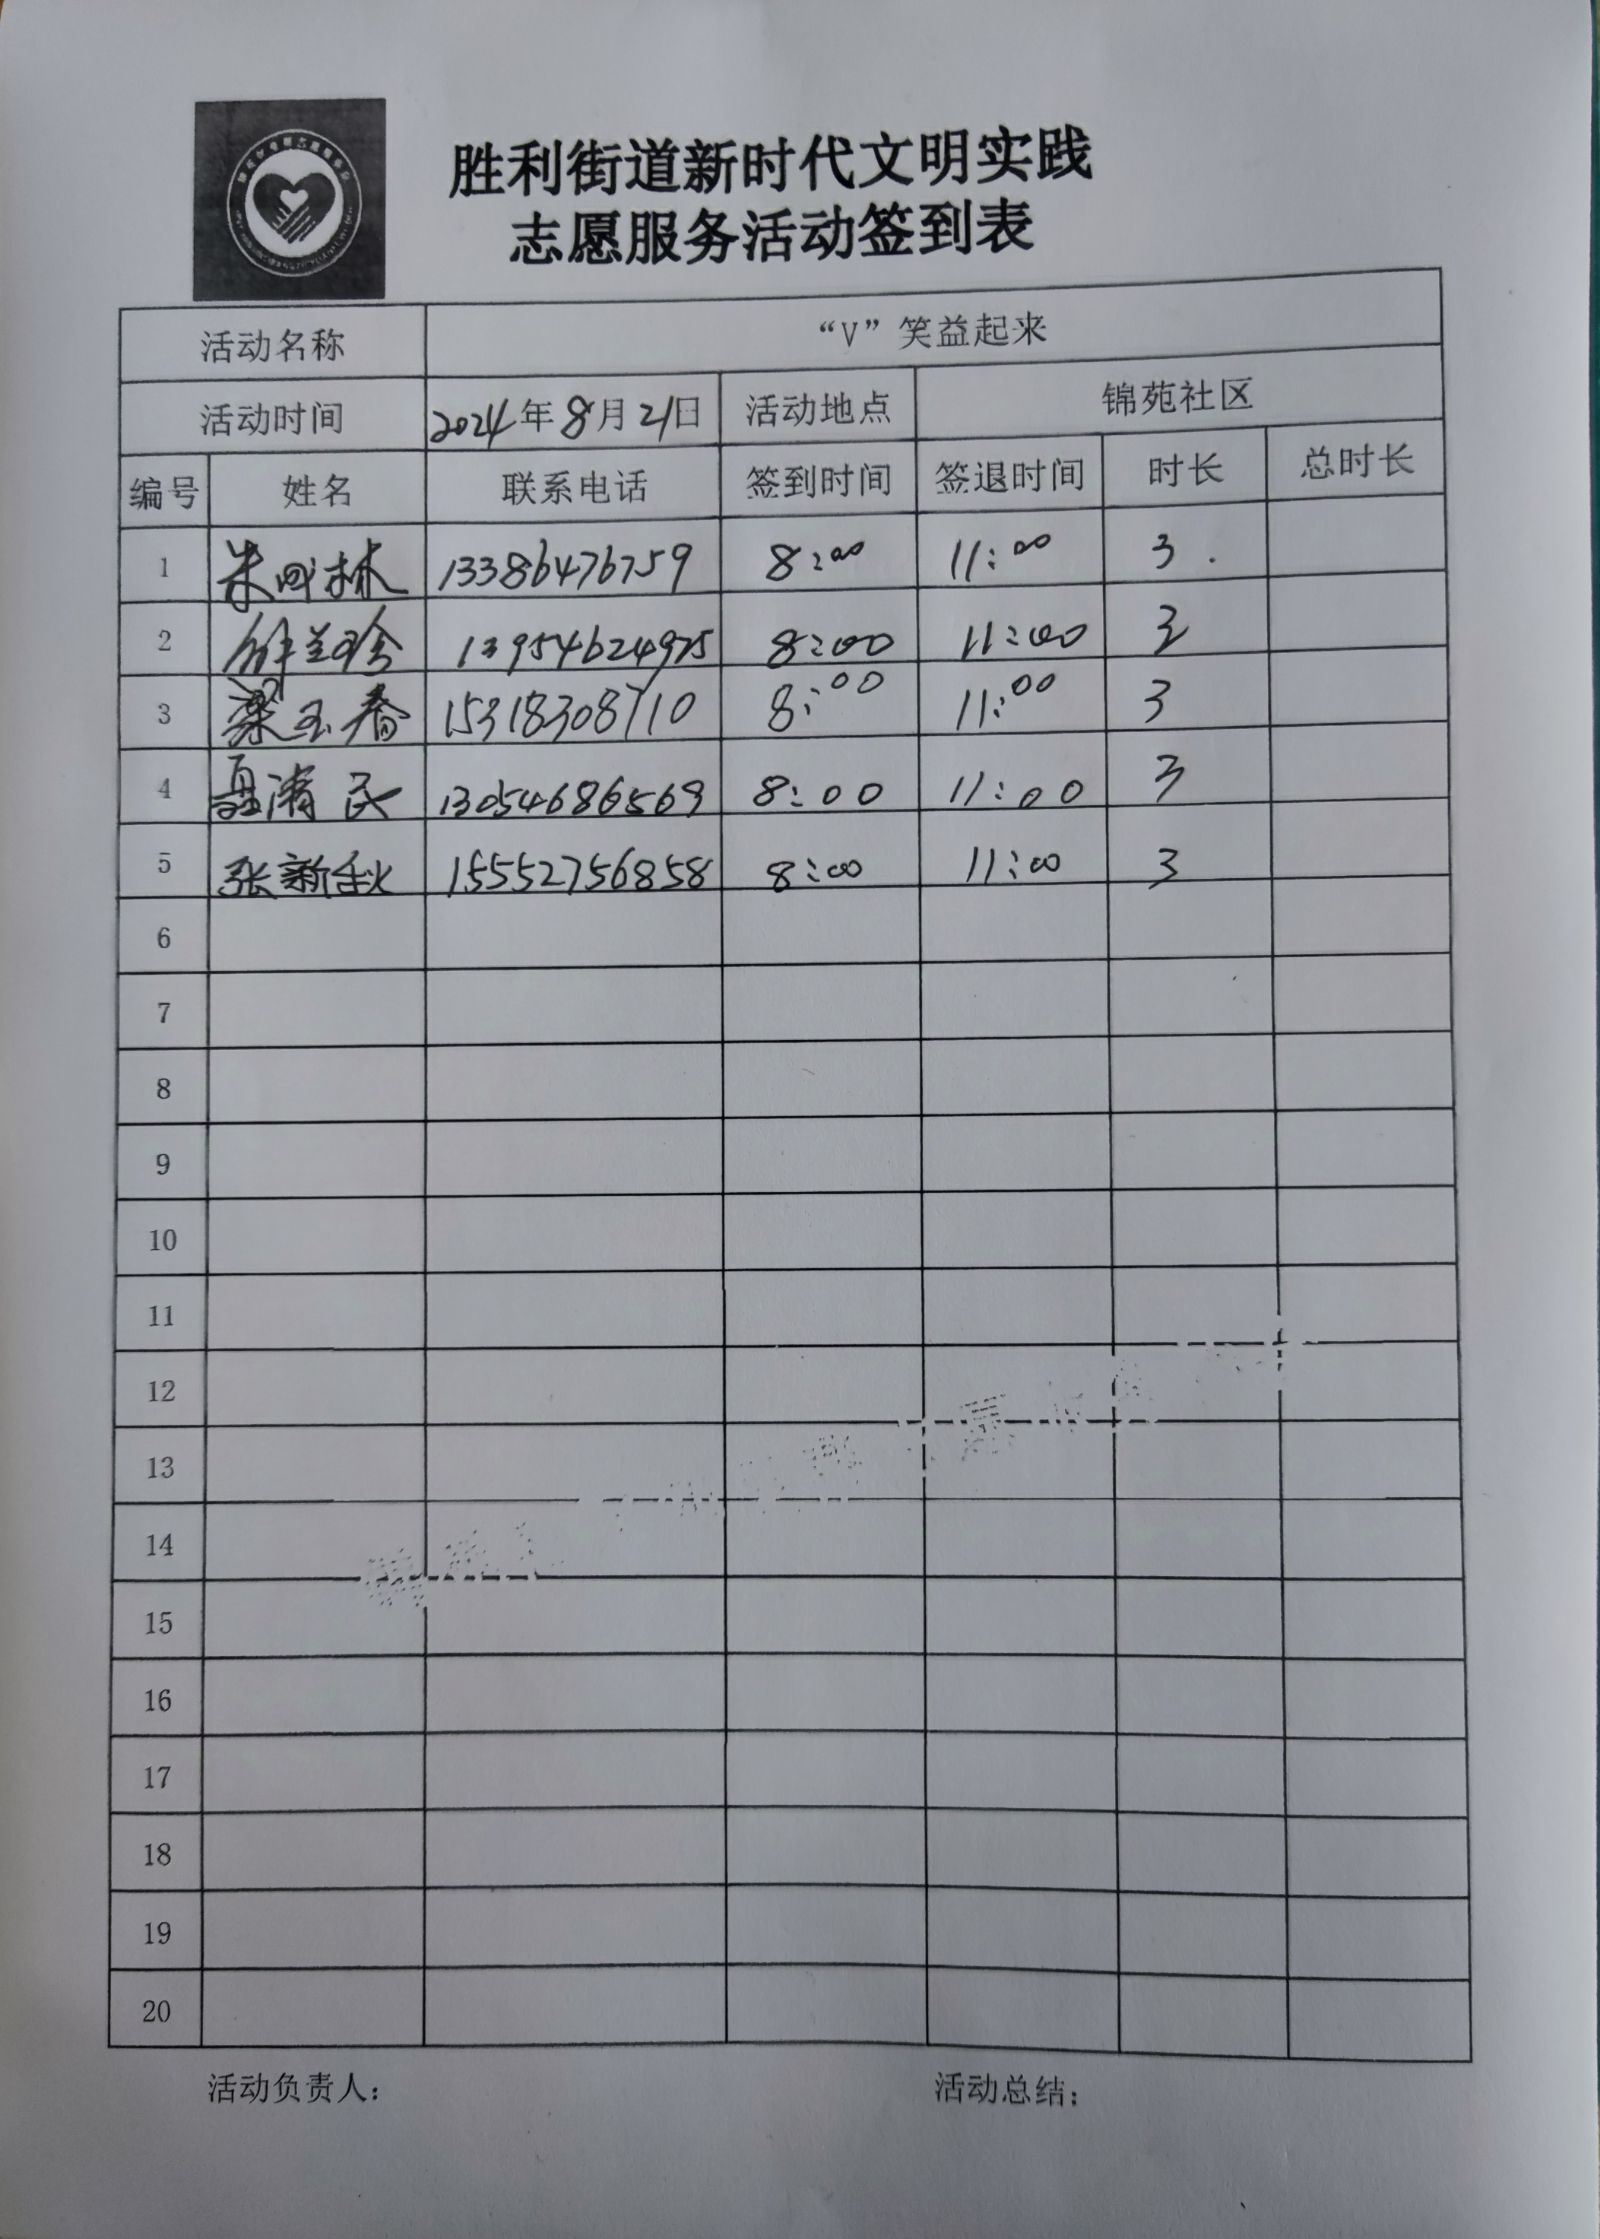 胜利街道新时代文明实践
志愿服务活动签到表
活动名称 “V”笑益起来
活动时间 2024年8月21日 活动地点 锦苑社区
编号 姓名 联系电话 签到时间 签退时间 时长 总时长
1 朱林 13386476759 8:00 11:00 3
2 13954624975 8:00 11:00 3
3 梁玉春 15318308710 8:00 11:00 3
4 聂清民 13054686569 8:00 11:00 3
5 张新秋 15552756858 8:00 11:00 3
6
7
8
9
10
11
12
13
14
15
16
17
18
19
20
活动负责人: 活动总结: